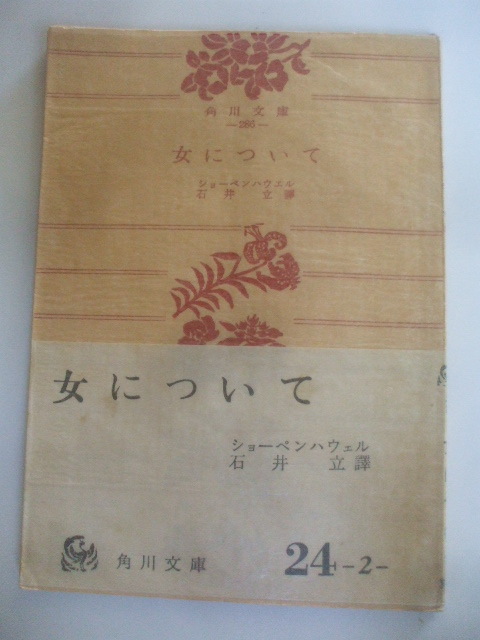 角川文庫
—286—
女について
ショーペンハウエル
石井 立譯
女について
ショーペンハウェル
石井 立譯
角川文庫
24-2-